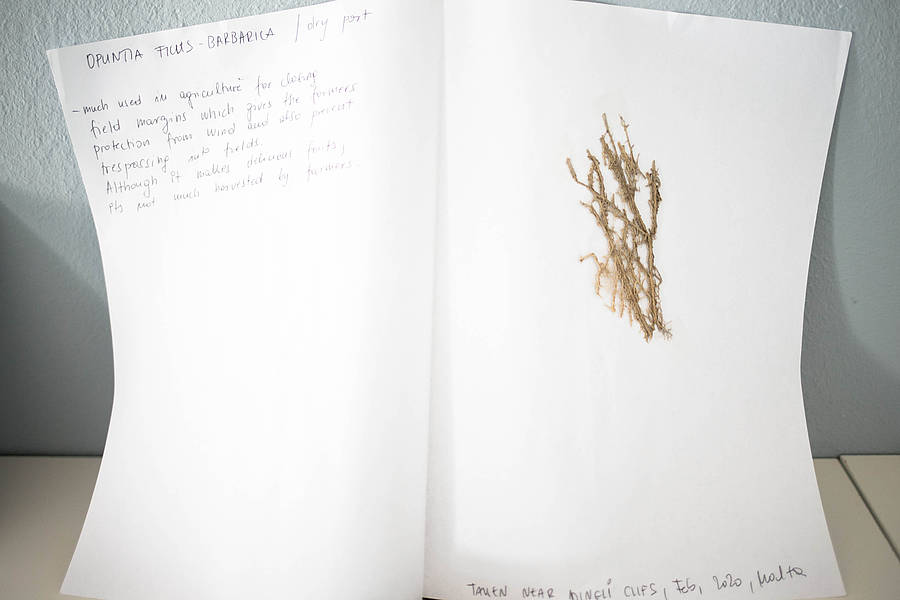 OPUNTIA FICUS-BARBARICA / dry part
- much used in agriculture for closing
field margins which gives the farmers
protection from wind and also prevent
trespassing into fields.
Although it makes delicious fruits,
its not much harvested by farmers.
TAKEN NEAR DINGLI CLIFS, Feb, 2020, Malta